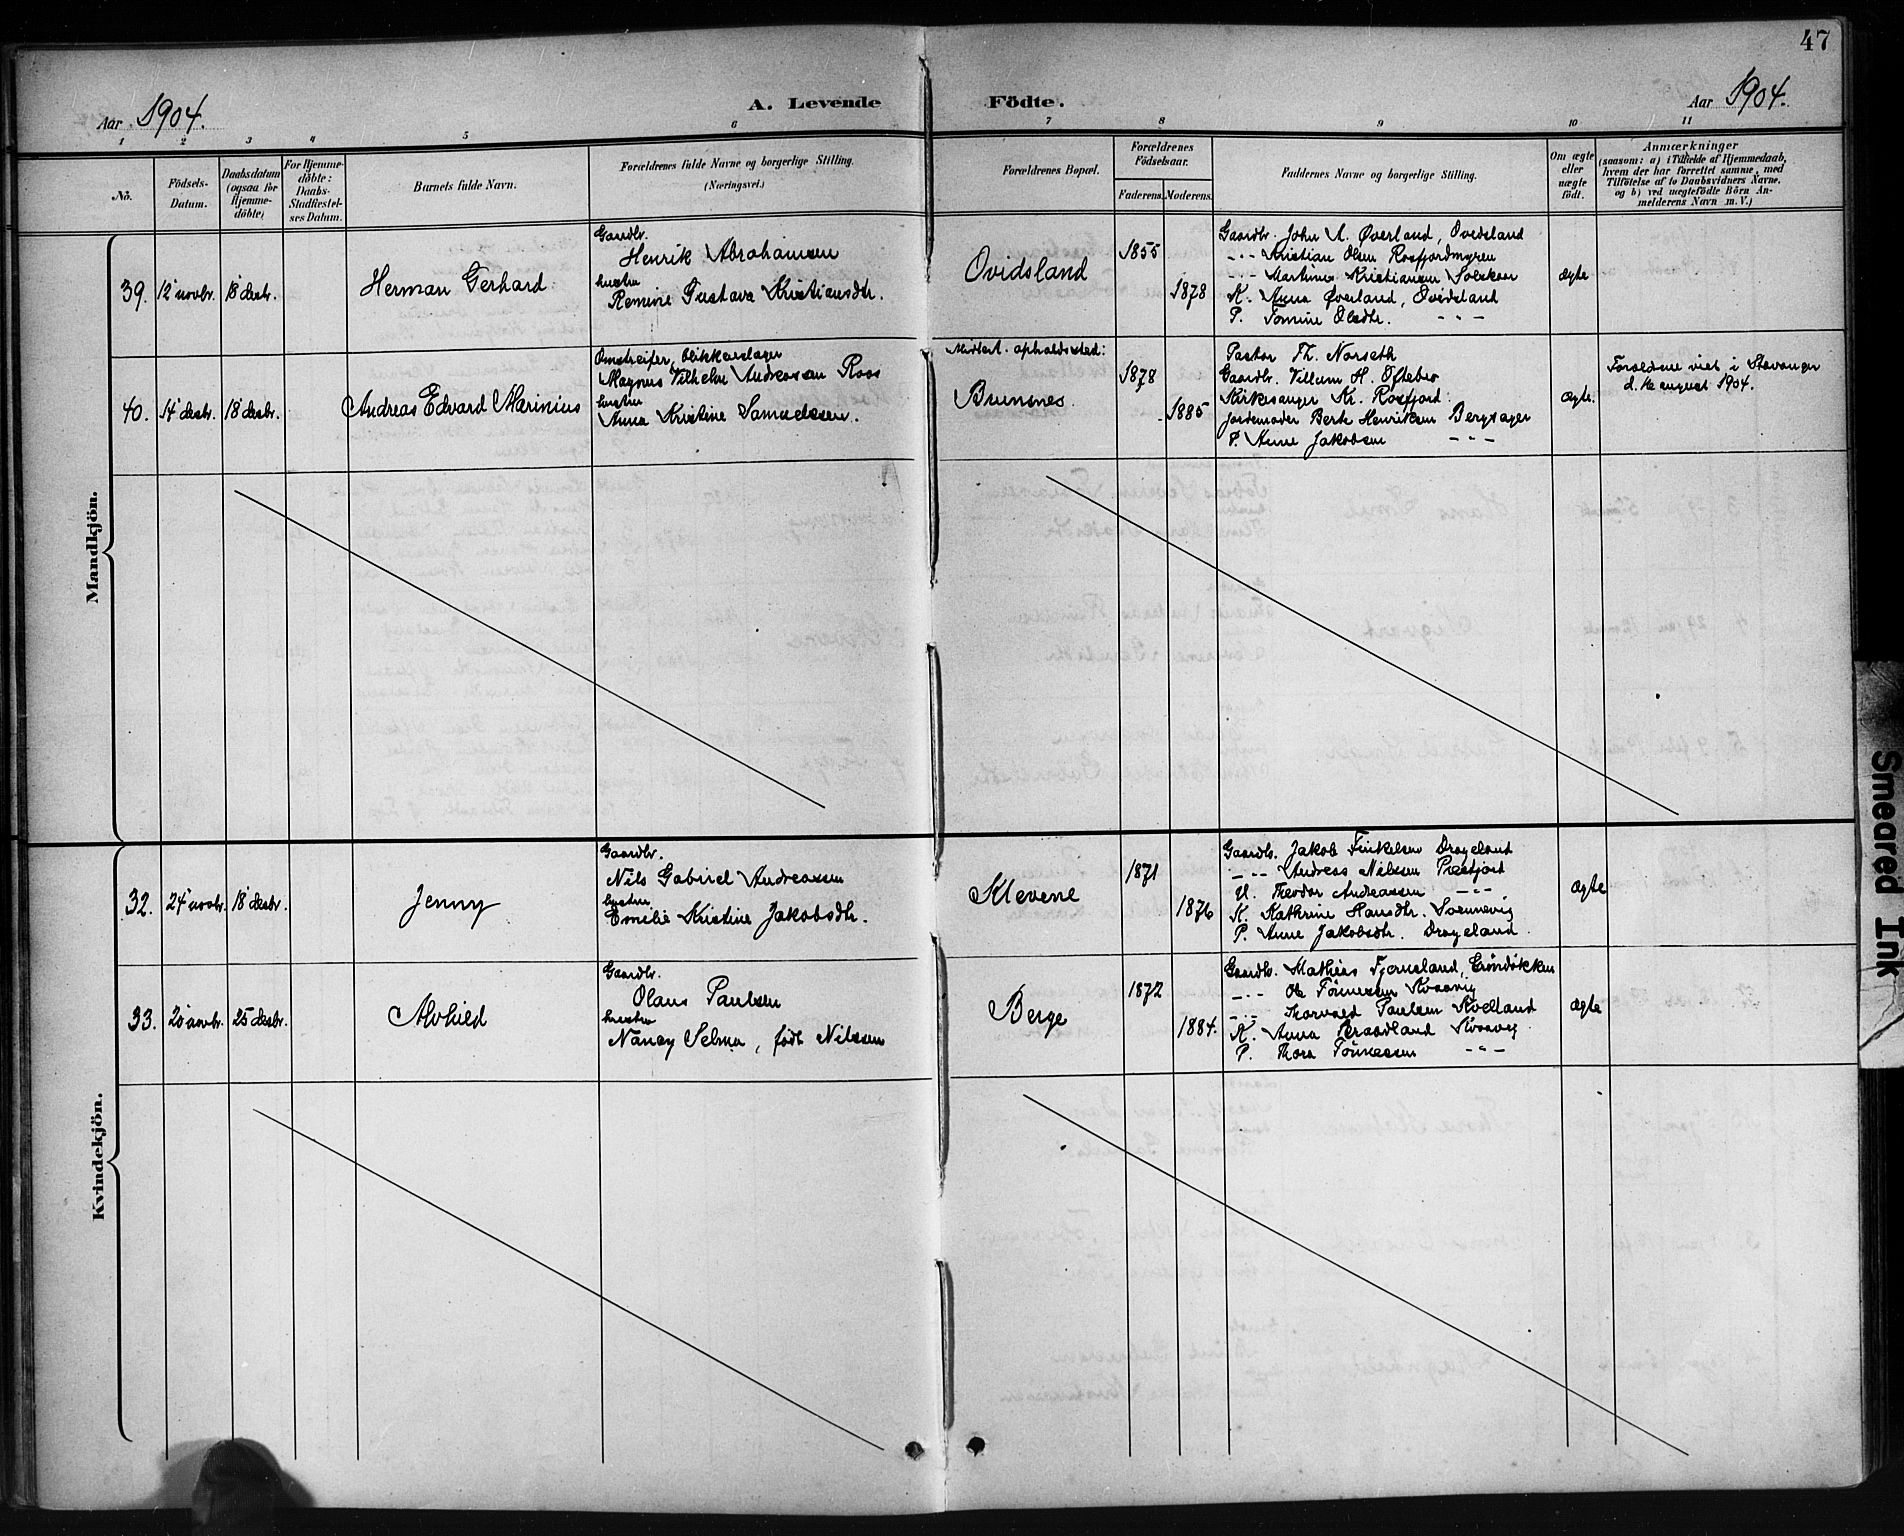 47
Aar 1904.
A. Levende Födte.
Aar 1904.
1 2 3 4 5 6 7 8 9 10 11
No.
Födsels-
Datum.
Daabsdatum
(ogsaa for
Hjemme-
döbte)
For Hjemme-
döbte:
Daabs-
Stadfæstel-
ses Datum.
Barnets fulde Navn.
Forældrenes fulde Navne og borgerlige Stilling.
(Næringsvei.)
Forældrenes Bopæl.
Forældrenes
Födselsaar.
Faderens. Moderens.
Faddernes Navne og borgerlige Stilling.
Om ægte
eller
uægte
födt.
Anmærkninger
(saasom: a) i Tilfælde af Hjemmedaab,
hvem der har forrettet samme, med
Tilföielse af to Daabsvidners Navne,
og b) ved uægtefödte Börn An-
melderens Navn m. V.)
Mandkjön.
39. 12 novbr. 18 desbr.
Herman Gerhard
Gaardbr.
Henrik Abrahamsen
hustru
Remine Gustava Kristiansdtr.
Ovidsland
1855
1878
Gaardbr. John A. Øverland, Ovidsland
-"- Kristian Olsen Rosfjordmyren
-"- Martinus Kristiansen
K. Anna Øverland, Ovidsland
P. Tomine Olsdtr. -"-
ægte
40. 14 desbr. 18 desbr.
Andreas Edvard Marinius
Omstreifer, blikkenslager
Magnus Vilhelm Andreassen Roos
hustru
Anna Kristine Samuelsen.
Midlert. opholdssted:
Brunsnes.
1878
1885
Pastor Th. Norseth
Gaardbr. Villum H. Øftebro
Kirkesanger Kr. Rosfjord
Jordemoder Berte Henriksen Bergsager
P. Anne Jakobsen -"-
ægte.
Forældrene viet i Stavanger
d. 12 august 1904.
Kvindekjön.
32. 24 novbr. 18 desbr.
Jenny
Gaardbr.
Nils Gabriel Andreassen
hustru
Emilie Kristine Jakobsdtr.
Klevene
1871
1876
Gaardb. Jakob Finkelsen Drageland
-"- Andreas Nilssen Præstfjort
U. Theodor Andreassen -"-
K. Kathrine Hansdtr. Svennevig
P. Anne Jakobsdtr. Drageland.
ægte
33. 20 novbr. 25 desbr.
Alvhild
Gaardbr.
Olaus Paulsen
hustru
Nancy Selma, född Nilssen
Berge
1872
1884.
Gaardbr. Mathias Fjerneland,
-"- Ole Tönnessen Kvaavig
-"- Thorvald Paulsen Kvelland
K. Anna Braadland Kvaavig
P. Thora Tönnessen -"-
ægte
Smeared Ink